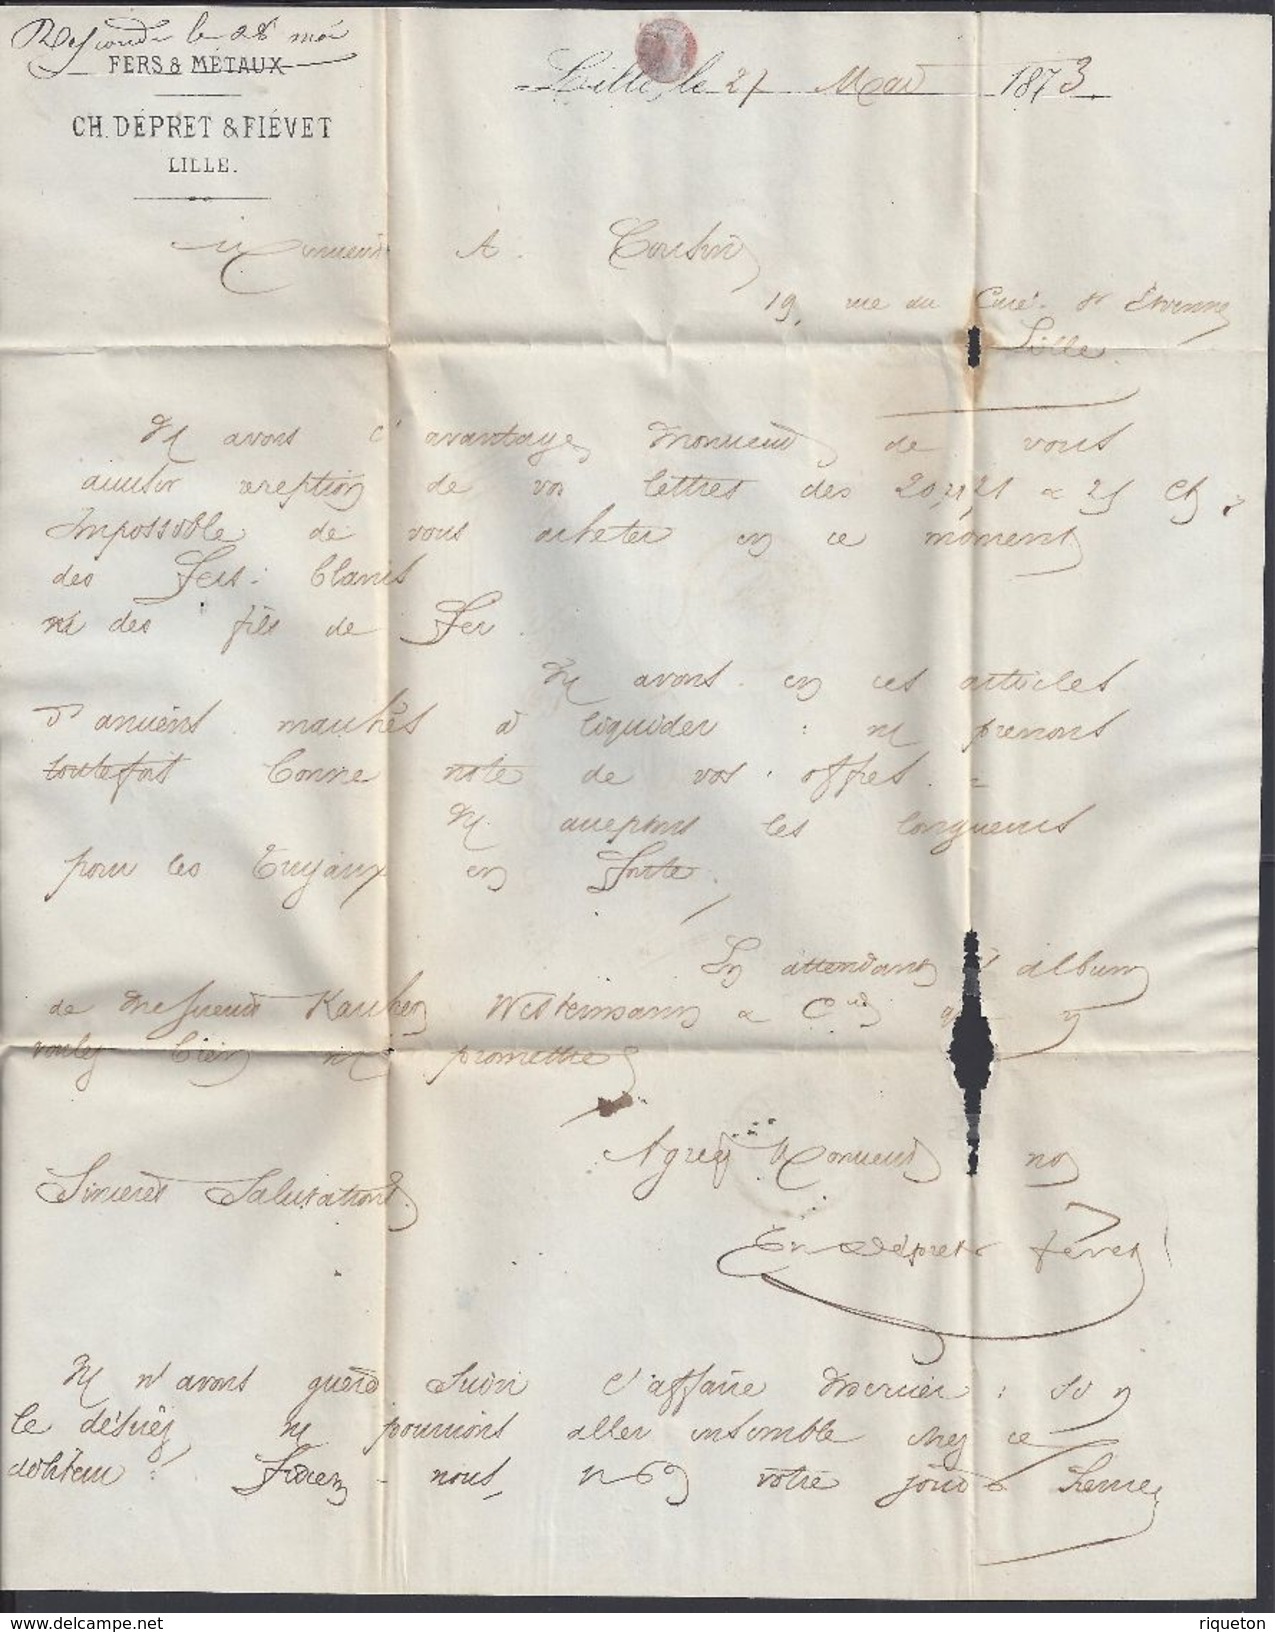 Répondu le 28 mai
FERS & MÉTAUX
CH. DÉPRET & FIÉVET
LILLE.
Lille, le 27 Mai 1873.
Monsieur A. Cousin
19, rue du Curé St Etienne
Lille.
Ns avons l'avantage Monsieur de vous
accuser réception de vos lettres des 20, 21 & 25 Ct
Impossible de vous acheter en ce moment
des Fers blancs
ni des fils de Fer.
Ns avons en ces articles
d'anciens marchés à liquider : ns prenons
toutefois bonne note de vos offres.
Ns acceptons les longueurs
pour les Tuyaux en Fonte.
En attendant l'album
de Messieurs Karcher Westermann & Cie que v
voulez bien ns promettre
Agréez Monsieur nos
Sincères Salutations
Ch Dépret & Fiévet
Ns n'avons guère suivi l'affaire Mercier : si v
le désirez ns pourrions aller ensemble chez ce
débiteur : nous, votre jour & heure